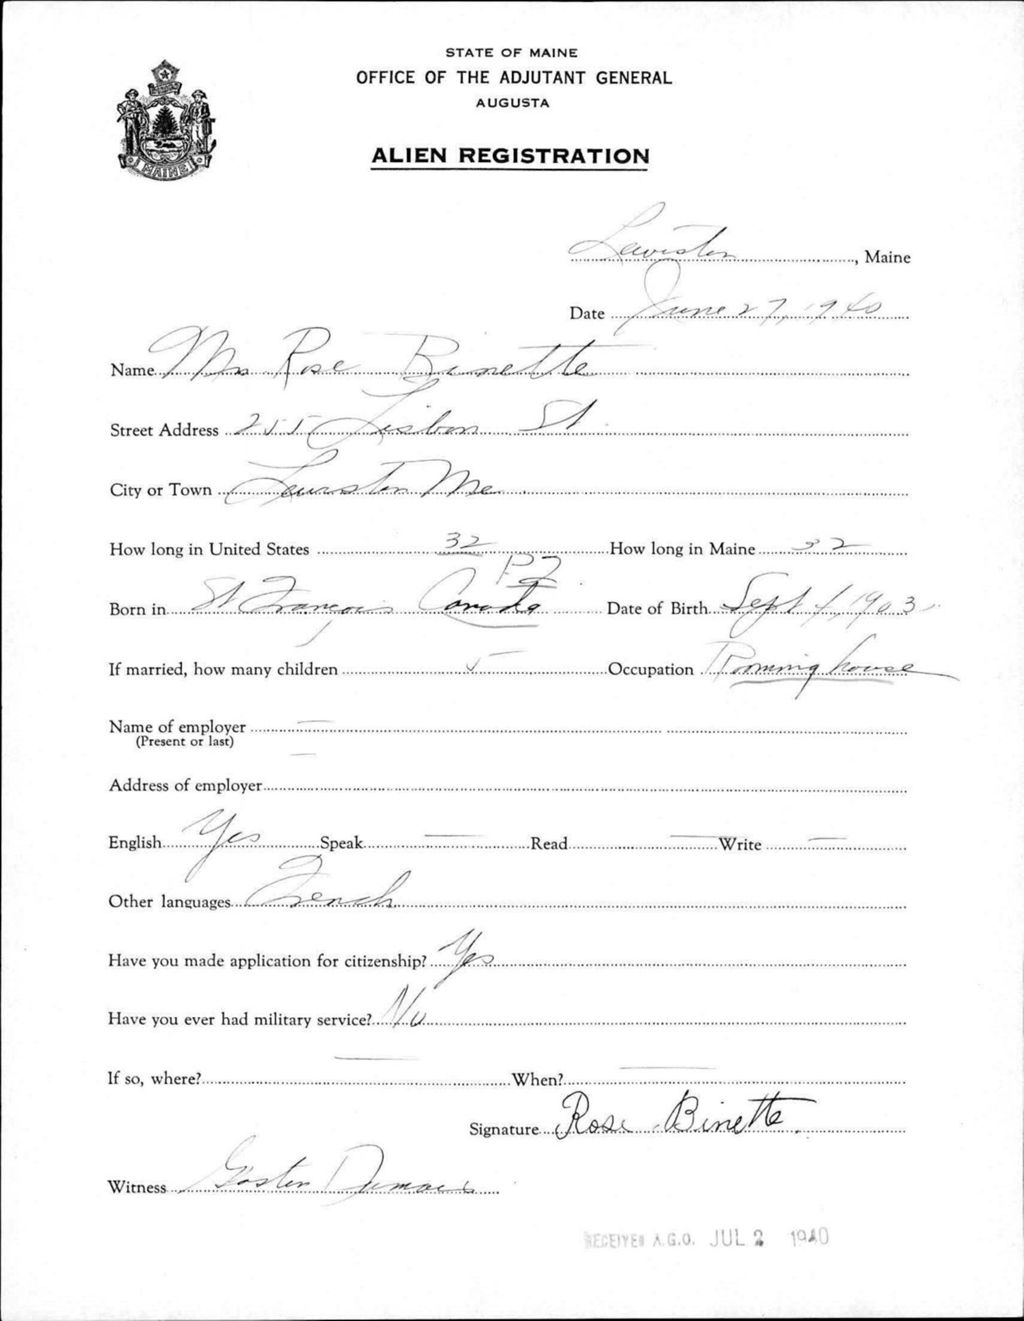 STATE OF MAINE
OFFICE OF THE ADJUTANT GENERAL
AUGUSTA
ALIEN REGISTRATION
MAINE
Lewiston, Maine
Date June 27, 1940
Name Mrs Rose Binette
Street Address 255 Lisbon St
City or Town Lewiston Me.
How long in United States 32 How long in Maine 32
P2
Born in St François Canada Date of Birth Sept 1, 1903
If married, how many children 5 Occupation Rooming house
Name of employer —
(Present or last)
Address of employer —
English Yes Speak — Read — Write —
Other languages French
Have you made application for citizenship? Yes
Have you ever had military service? No
If so, where? — When? —
Signature Rose Binette
Witness Gaston Dumais
RECEIVED A.G.O. JUL 2 1940